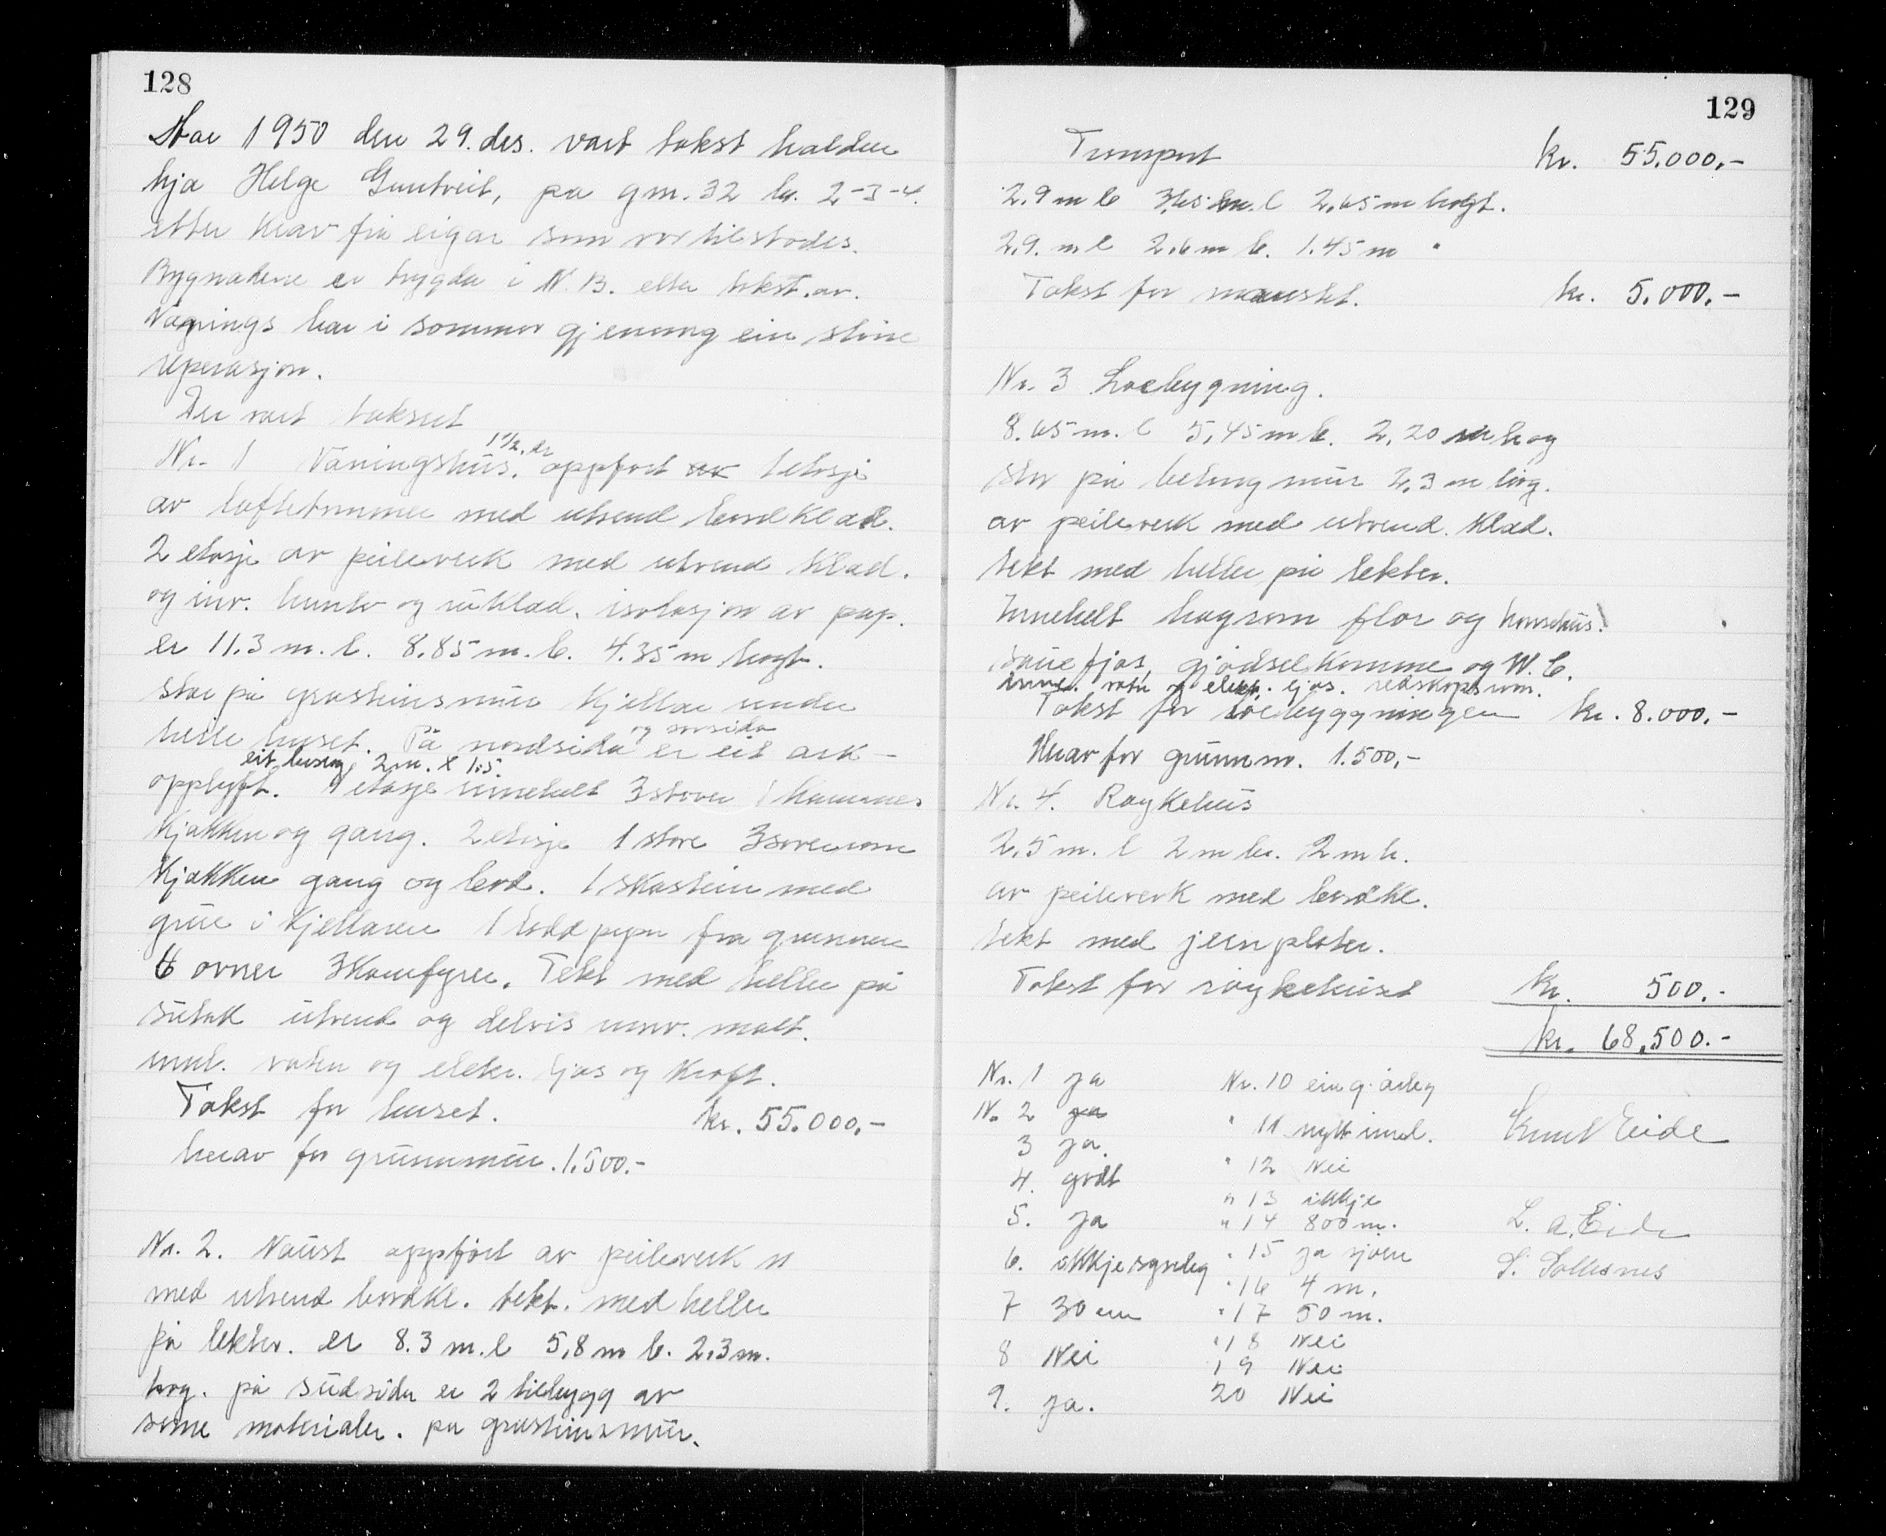 128
Aar 1950 den 29. des. vart takst halden
hja Helge Guntveit, pa gm. 32 br. 2-3-4.
etter krav fra eigar som var tilstades.
Bygnadene er trygda i N. B. etter takst av.
Vaanings har i sommer gjenomg ein storre
reperasjon.
Der vart taksert
Nr. 1 Vaningshus. 1 1/2 er oppfort av 1 etasje
av laftetommer med utvend bordklad.
2 etasje av peileverk med utvend klad.
og inv. hunto og inklad. isolasjon av pap.
er 11.3 m. l. 8.85 m. b. 4.35 m høgt.
star på grasteinsmur kjellar under
heile huset. På nordsida og sorsida er eit ark-
opplyft. eit bislag 2 m. x 1.5. 1 etasje innehelt 3 stover 1 kammes
kjøkken og gang. 2 etasje 1 stove 3 soverom
kjøkken gang og bod. 1 skorstein med
grue i kjellaren 1 ladd pipe fra grunnen
6 ovner 3 komfyrer. Tekt med heller på
sutak utvend og delvis innv. malt.
innl. vatn og elekr. ljos og kraft.
Takst for huset. kr. 55.000,-
herav for grunnmur. 1.500.-
Nr. 2. Naust oppført av peileverk
med utvend bordkl. tekt. med heller
på lekter. er 8.3 m. l 5,8 m b. 2.3 m.
høg. på sudsida er 2 tilbygg av
same materialer. på grasteinsmur.
129
Transport kr. 55.000,-
2.9 m b 3.65 m. l 2,65 m høgt.
2.9. m l 2.6 m b. 1.45 m "
Takst for naustet. kr. 5.000.-
Nr. 3 Loebygning.
8.65 m. l 5,45 m b. 2,20 m høg
star på betong mur 2,3 m høg.
av peileverk med utvend. klad.
tekt med heller på lekter.
Innehelt høgrom flor og honsehus.
Sauefjos, gjødselkomme og W. C.
innl. vatn og elekt. ljos. redskapsrom.
Takst for loebyggningen kr. 8.000.-
Herav for grunnm. 1.500,-
Nr. 4. Røykehus
2,5 m. l 2 m br. 2 m h.
av peileverk med bordkl.
tekt med jernplater.
Takst for røykehuset kr. 500.-
kr. 68.500.-
Nr. 1 ja
N. 2 ja
3 ja.
4. godt
5. ja
6. ikkje synleg
7 30 cm
8 Nei
9. ja.
Nr. 10 ein g. årleg
" 11 nytt innl.
" 12 Nei
" 13 ikkje
" 14 800 m.
" 15 ja sjøen
" 16 4 m.
" 17 50 m.
" 18 Nei
19 Nei
20 Nei
Knut Eide
L. A. Eide
S. Soltesnes